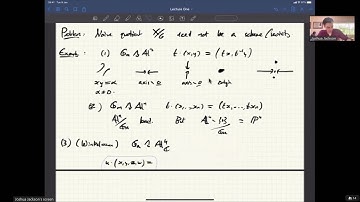 Lecture One
Problem: Naive quotient X/G need not be a scheme/variety
Example: (1) G_m ↷ A^2 t·(x,y) = (tx, t^{-1}y)
xy=α axis-0 axis-0 origin
α≠0.
(2) G_m ↷ A^n t·(x_1,...,x_n) = (tx_1,...,tx_n)
A^n/G_m bad. But A^n-{0}/G_m = P^n
(3) (Winkelmann) G_a ↷ A^4_C
u·(x,y,z,w) =
Joshua Jackson's screen